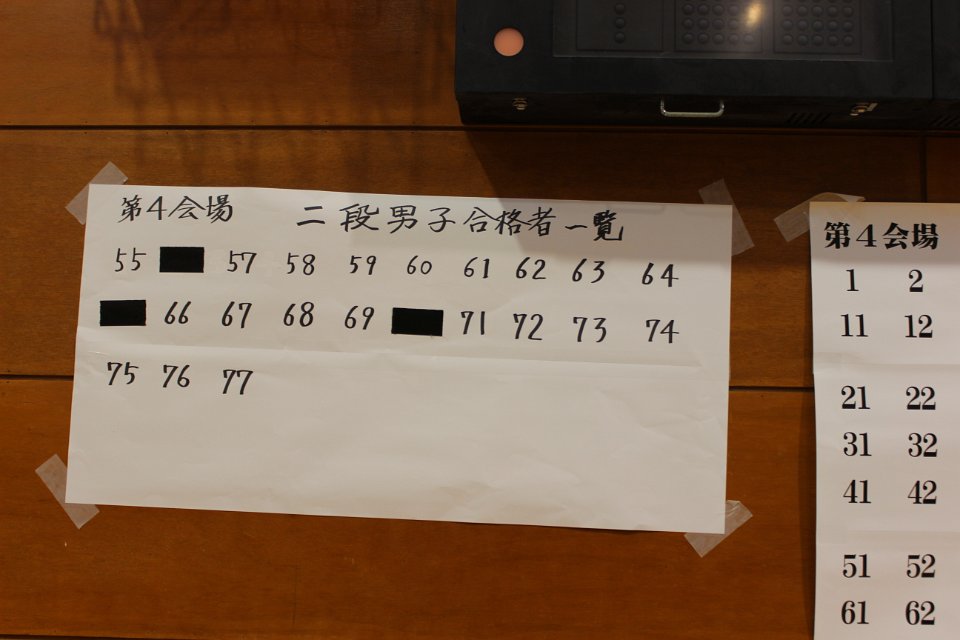 第4会場 二段男子合格者一覧
55 57 58 59 60 61 62 63 64
66 67 68 69 71 72 73 74
75 76 77
第4会場
1 2
11 12
21 22
31 32
41 42
51 52
61 62